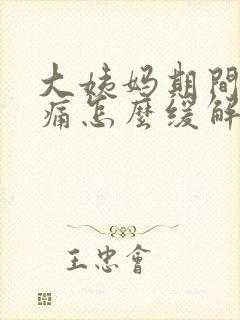 大姨妈期間
痛怎麼缓解
王忠會